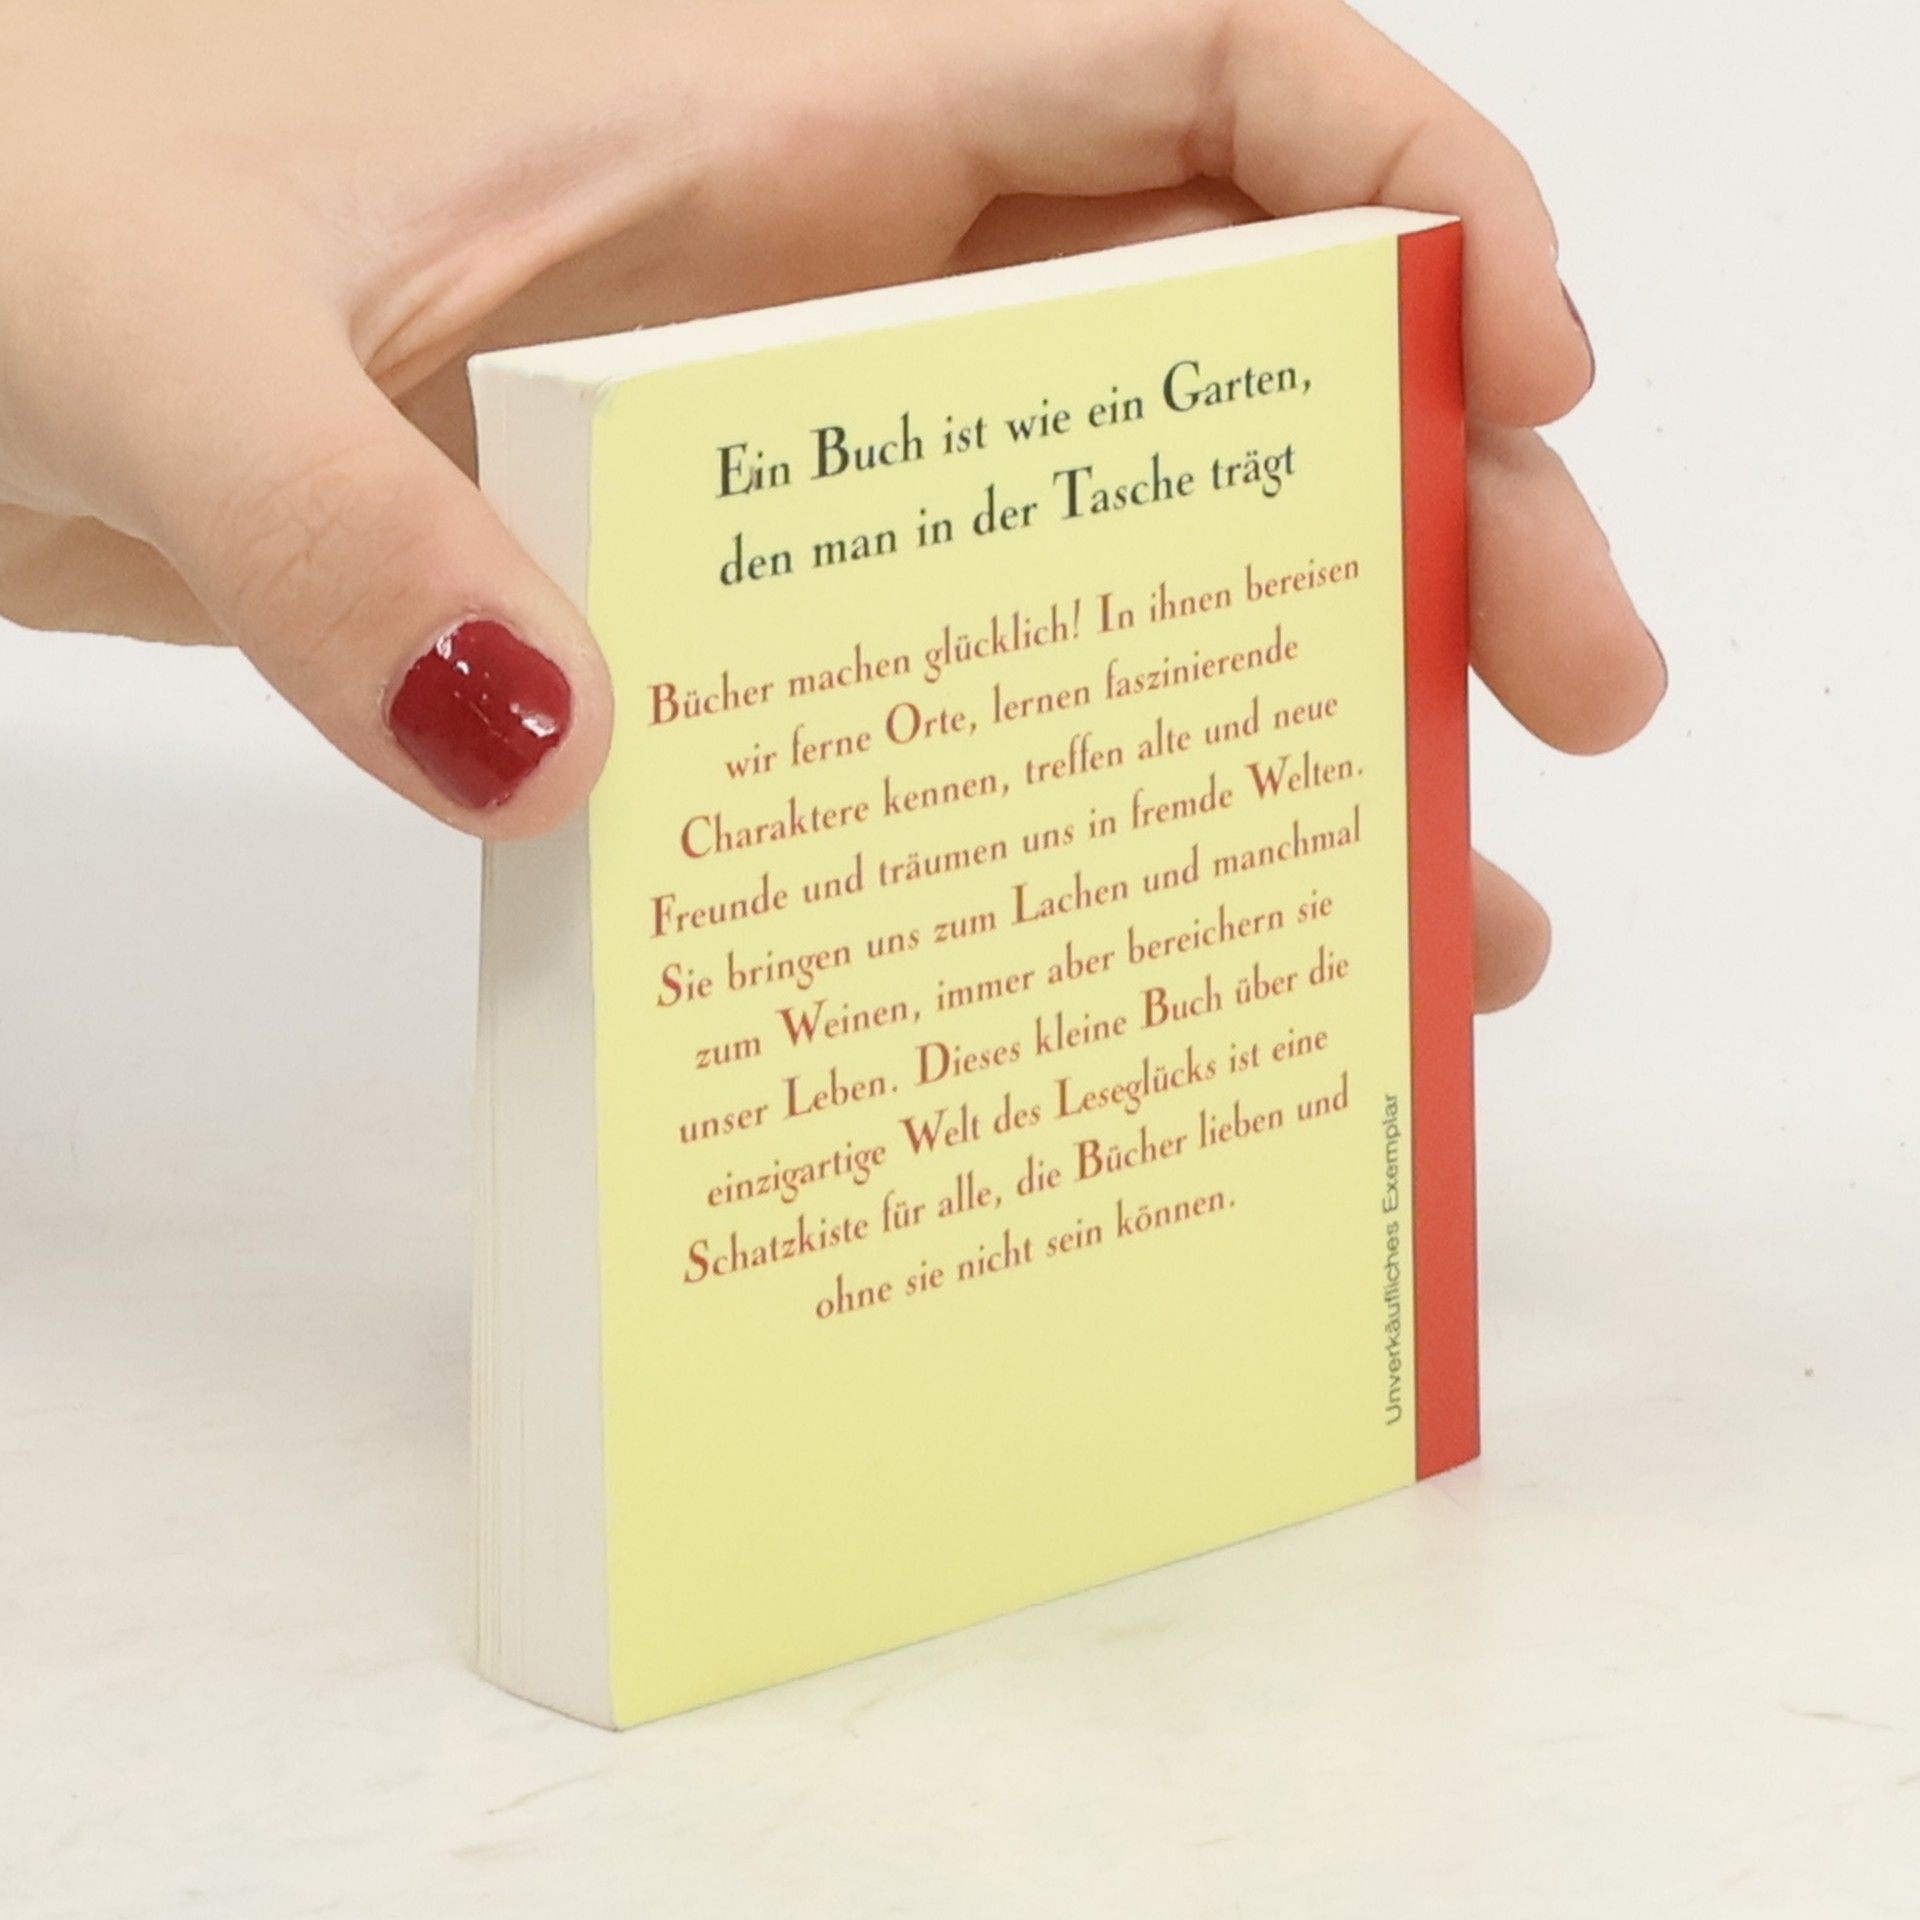 Ein Buch ist wie ein Garten,
den man in der Tasche trägt
Bücher machen glücklich! In ihnen bereisen
wir ferne Orte, lernen faszinierende
Charaktere kennen, treffen alte und neue
Freunde und träumen uns in fremde Welten.
Sie bringen uns zum Lachen und manchmal
zum Weinen, immer aber bereichern sie
unser Leben. Dieses kleine Buch über die
einzigartige Welt des Leseglücks ist eine
Schatzkiste für alle, die Bücher lieben und
ohne sie nicht sein können.
Unverkäufliches Exemplar